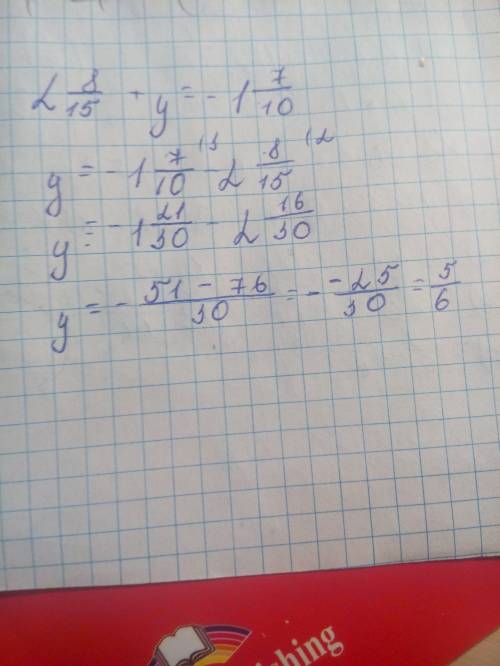 2 8/15 + y = - 1 7/10
y = - 1 7/10 (3 - 2 8/15 (2
y = - 1 21/30 - 2 16/30
y = - 51 - 76/30 = - -25/30 = 5/6
shing